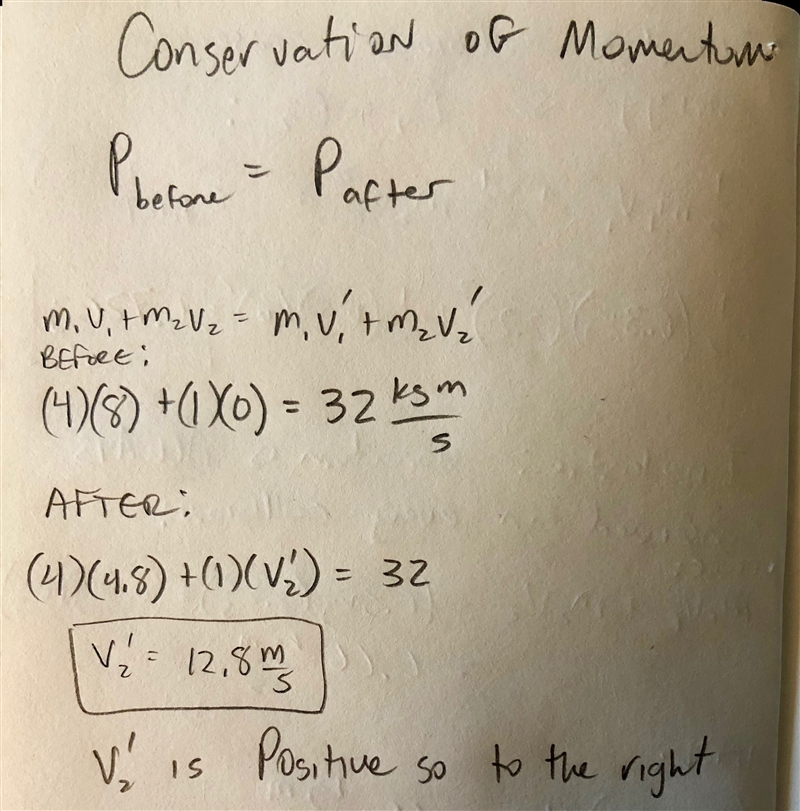 Conservation of Momentum
P before = P after
m₁v₁ + m₂v₂ = m₁v₁' + m₂v₂'
BEFORE:
(4)(8) + (1)(0) = 32 kg m/s
AFTER:
(4)(4.8) + (1)(V₂') = 32
V₂' = 12.8 m/s
V₂' is Positive so to the right